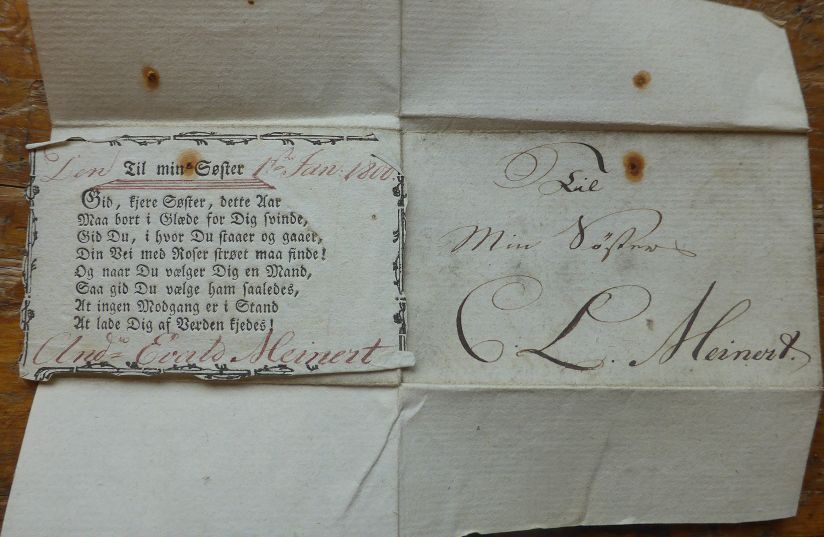 Den Til min Søster 1ste Jan: 1800.
Gid, kjere Søster, dette Aar
Maa bort i Glæde for Dig svinde,
Gid Du, i hvor Du staaer og gaaer,
Din Vei med Roser strøet maa finde!
Og naar Du vælger Dig en Mand,
Saa gid Du vælge ham saaledes,
At ingen Modgang er i Stand
At lade Dig af Verden kjedes!
Meinert
Til
Min Söster
C. L. Meinert.